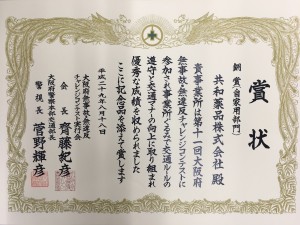 賞状
銅賞(自家用部門)
共和薬品株式会社 殿
貴事業所は第十一回大阪府
無事故・無違反チャレンジコンテストに
参加され事業所ぐるみで交通ルールの
遵守と交通マナーの向上に取り組まれ
優秀な成績を収められました
ここに記念品を添えて賞します
平成二十九年八月十八日
大阪府無事故・無違反
チャレンジコンテスト実行会
会長 齊藤紀彦
大阪府警察本部交通部長
警視長 菅野輝彦